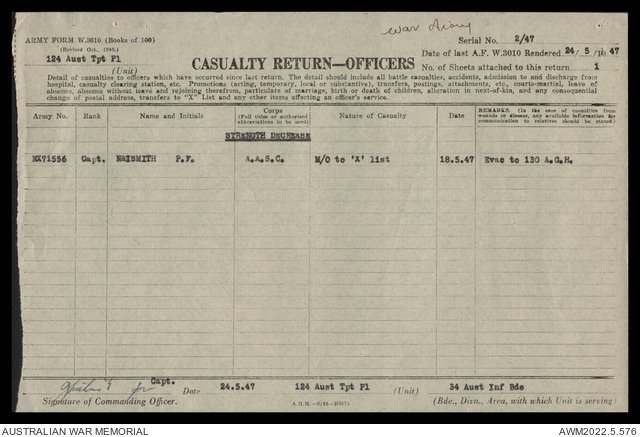 war diary
ARMY FORM W.3010 (Books of 100)
(Revised Oct., 1942.)
124 Aust Tpt Pl
(Unit)
Serial No. 2/47
Date of last A.F. W.3010 Rendered 24/ 5 /1947
CASUALTY RETURN—OFFICERS
No. of Sheets attached to this return 1
Detail of casualties to officers which have occurred since last return. The detail should include all battle casualties, accidents, admission to and discharge from
hospital, casualty clearing station, etc. Promotions (acting, temporary, local or substantive), transfers, postings, attachments, etc., courts-martial, leave of
absence, absence without leave and rejoining therefrom, particulars of marriage, birth or death of children, alteration in next-of-kin, and any consequential
change of postal address, transfers to "X" List and any other items affecting an officer's service.
Army No. Rank Name and Initials Corps (Full titles or authorised abbreviations to be used) Nature of Casualty Date REMARKS. (In the case of casualties from wounds or disease, any available information for communication to relatives should be stated.)
STRENGTH DECREASE
NX71556 Capt. NAISMITH P.F. A.A.S.C. M/O to 'X' list 18.5.47 Evac to 130 A.G.H.
Capt.
Signature of Commanding Officer.
Date 24.5.47 124 Aust Tpt Pl (Unit) 34 Aust Inf Bde
(Bde., Divn., Area, with which Unit is serving)
AUSTRALIAN WAR MEMORIAL
AWM2022.5.576